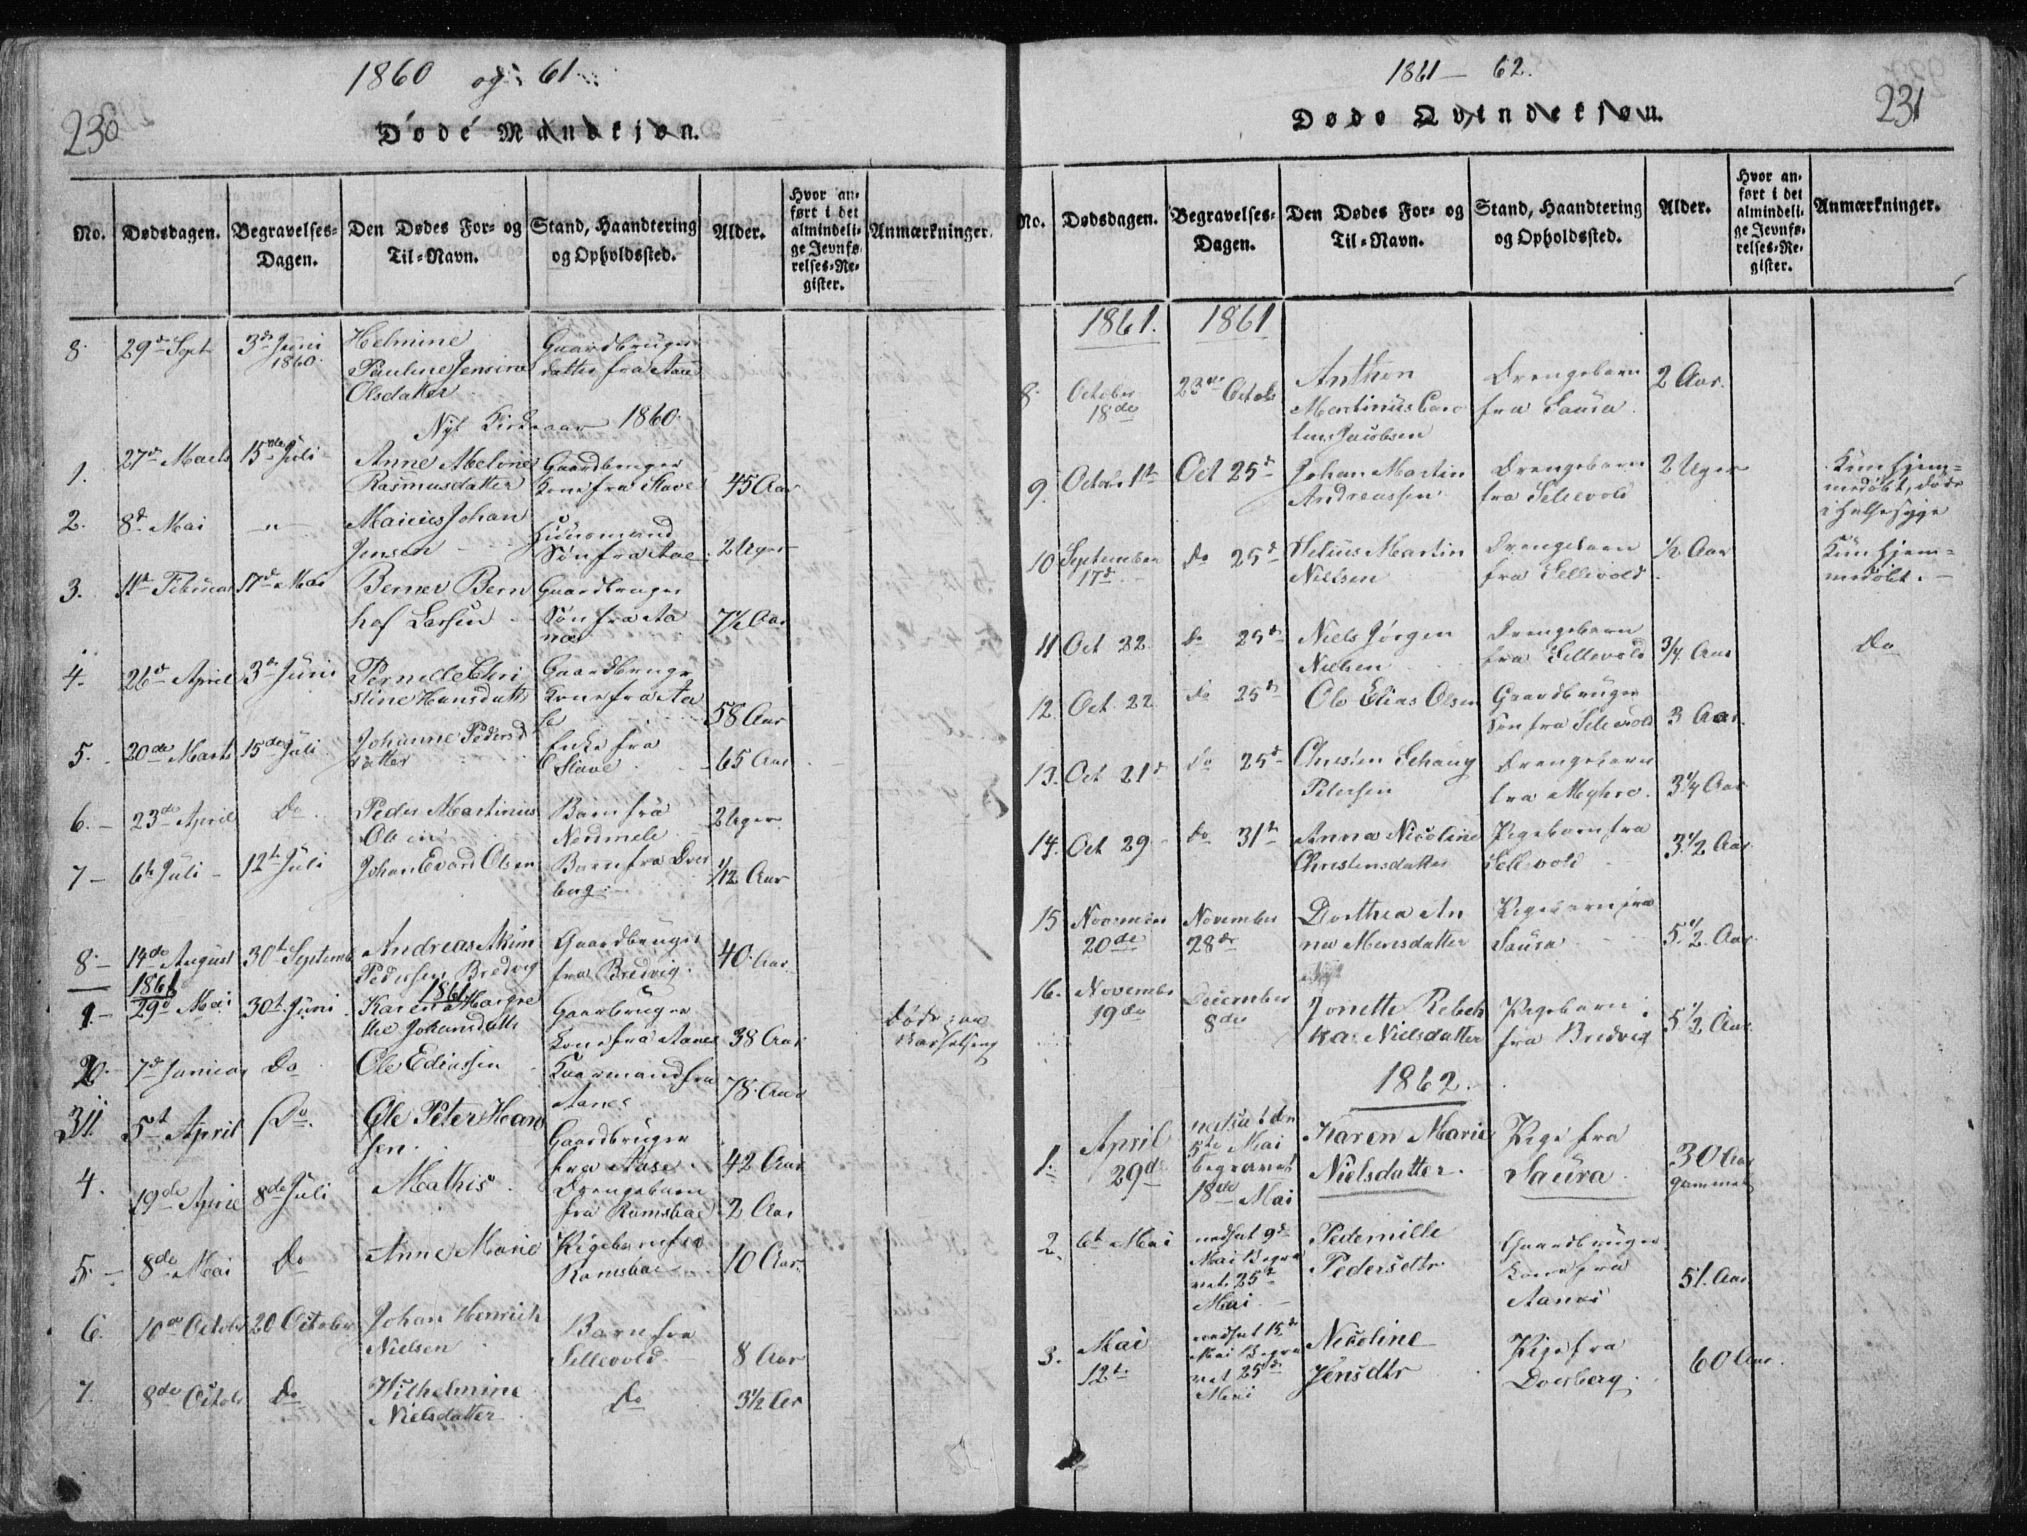 1860 og 61
230
Døde Mandkjøn.
No.
Dødsdagen.
Begravelses-
Dagen.
Den Dødes For- og
Til-Navn.
Stand, Haandtering
og Opholdssted.
Alder.
Hvor an-
ført i det
almindeli-
ge Jevnfø-
relses-Re-
gister.
Anmærkninger.
8. 29de Sept 3de Juni
1860
Helmine
Pauline Jensine
Olsdatter
Gaardbruger
datter fra Aase
Nyt Kirkeaar 1860.
1. 27de Marts 15de Juli
Anne Abelone
Rasmusdatter
Gaardbruger
Kone fra Slave
45 Aar
2. 8d Mai — " —
Marius Johan
Jensen
Huusmand
Søn fra Aase
2 Uger
3. 11te Februar 17de Mai
Berner Bern
hof Larsen
Gaardbruger
Søn fra Aa
næs
7½ Aar
4. 26de April 3de Juni
Pernelle Chri
stine Hansdatt
Gaardbruger
Kone fra Aa
se
58 Aar
5. 20de Marts 15de Juli
Johanne Peders
datter
Enke fra
Slave
65 Aar
6. 23de April Do
Peder Martinius
Olsen
Barn fra
2 Uger
7 6te Juli 12te Juli
Johan Evard Olsen
Barn fra Dver
berg
1/12 Aar
8. 14de August 30te Septemb
Andreas Akim
Pedersen Bredvig
Gaardbruger
fra Bredvig.
40 Aar.
1861 1861
1. 29de Mai 30te Juni
Karen Margre
the Johansdatt
Gaardbruger
Kone fra Aanes
38 Aar
Døde paa
Barselseng
2. 7de Januar Do
Ole Ediassen
Kaarmand fra
Aanes
78 Aar
3. 5te April Do.
Ole Peter Hans
sen.
Gaardbruger
fra Aase.
42 Aar
4. 19de April 8de Juli
Mathis
Drengebarn
fra Ramsbae
2 Aar
5. 8de Mai Do
Anne Marie
Pigebarn fra
Ramsbae
10 Aar.
6. 10de October 20 October
Johan Henrich
Nielsen
Barn fra
Sellevold
8 Aar
7. 8de Octob Do
Wilhelmine
Nielsdatter
Do
3½ Aar
1861 — 62.
231
Døde Qvindekjøn.
No.
Dødsdagen.
Begravelses-
Dagen.
Den Dødes For- og
Til-Navn.
Stand, Haandtering
og Opholdssted.
Alder.
Hvor an-
ført i det
almindeli-
ge Jevnfø-
relses-Re-
gister.
Anmærkninger.
1861. 1861
8. October
18de
23de Octob
Anthon
Martinus Caro
lius Jacobsen
Drengebarn
fra Saura.
2 Aar.
9. Octob. 1te Oct 25de
Johan Martin
Andreassen
Drengebarn
fra Sellevold
2 Uger
Kun hjem-
medøbt, døde
i Halssyge
10 September
17d
do 25de
Helius Martin
Nielsen
Drengebarn
fra Sellevold
½ Aar
Kun hjem-
medøbt.
11 Oct 22 do 25de
Niels Jørgen
Nielsen
Drengebarn
fra Sellevold
3/4 Aar
Do
12. Oct. 22 do 25de
Ole Elias Olsen
Gaardbruger
Søn fra Selevold
3 Aar.
13. Oct 21d do 25de
Christen Schaug
Petersen
Drengebarn
fra Myhre.
3¼ Aar
14. Oct 29 do 31te
Anna Nicoline
Christensdatter
Pigebarn fra
Sellevold
3½ Aar
15 November
20de
November
28de
Dorthea An
na Monsdatter
Pigebarn fra
Saura
5½ Aar
16. Novembr
19de
December
8de
Jonette Rebek
ka Nielsdatter
Pigebarn
fra Bredvig
5½ Aar
1862.
1. April
29de
nedsat den
5te Mai
begravet
18de Mai
Karen Marie
Nielsdatter.
Pige fra
Saura.
30 Aar
gammel
2. 6te Mai
nedsat 9de
Mai Begra
vet 25de
Mai
Pedernille
Pedersdtr
Gaardbruger
Kone fra
Aanæs
51. Aar
3. Mai
12te
nedsat 15de
Mai Begra
vet 25de
Mai
Nicoline
Jensdtr
Pige fra
Dverberg.
60 Aar.